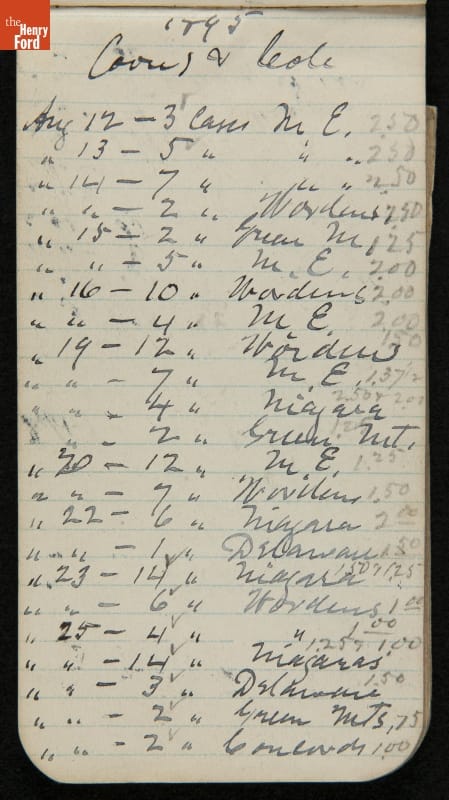 the
Henry
Ford
1895
Coons & Cole
Aug 12 - 3 Cases M. E. 2.50
" 13 - 5 " " " 2.50
" 14 - 7 " " " 2.50
" " - 2 " Wordens 2.50
" 15 - 2 " Green M. 1.25
" " - 5 " M. E. 2.00
" 16 - 10 " Wordens 2.00
" " - 4 " M. E. 2.00
" 19 - 12 " Wordens 1.50
" " - 7 " M. E. 1.37½
" " - 4 " Niagara 2.50 & 2.00
" - 2 " Green Mt.
" 20 - 12 " M. E. 1.25
" " - 7 " Wordens 1.50
" 22 - 6 " Niagara 2.00
" " - 1 " Delaware 1.50
" 23 - 14 " Niagara 1.50 & 1.25
" " - 6 " Wordens 1.00
" 25 - 4 " " 1.00
" " - 14 " Niagaras 1.25 & 1.00
" " - 3 " Delaware 1.50
" " - 2 " Green Mts. 75
" " - 2 " Concords 1.00